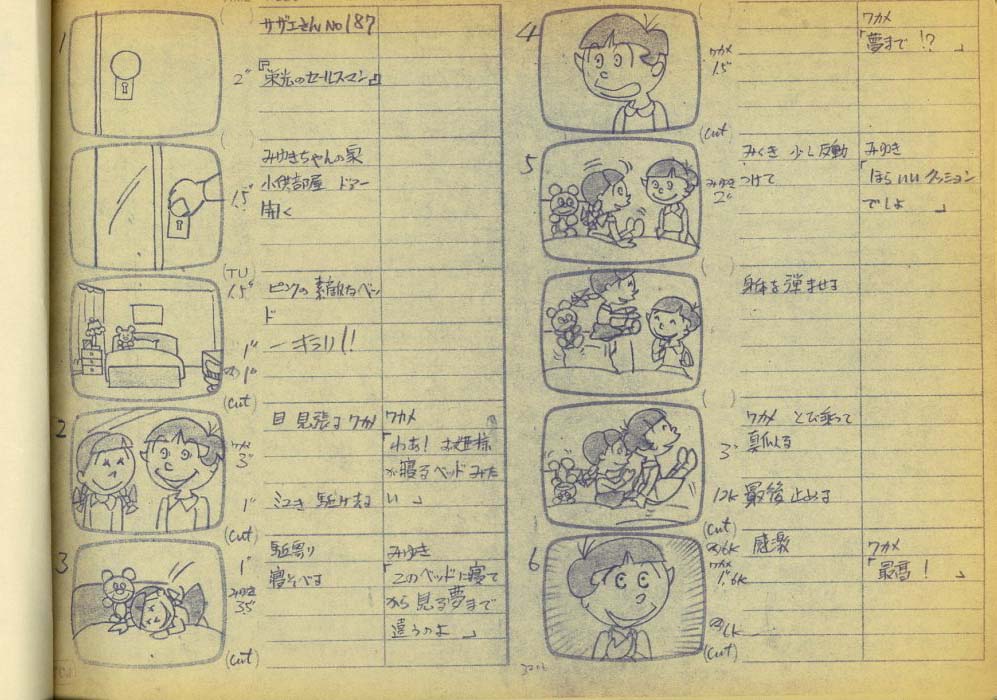 1
サザエさん No 187
2"
『栄光のセールスマン』
みゆきちゃんの家
1.5"
小供部屋 ドアー
開く
(TU)
1.5"
ピンクの素敵なベッ
ド
1"
ーキラリ!!
1"
(cut)
2
目見張るワカメ
ワカメ
ワカメ
3"
「わあ! お姫様
が寝るベッドみた
い 」
1"
(cut)
3
駈寄り
1"
寝そべる
みゆき
みゆき
3.5"
「このベッドに寝て
から見る夢まで
違うのよ 」
(cut)
4
ワカメ
1.5"
ワカメ
「夢まで!? 」
(cut)
5
少し反動
つけて
みゆき
2"
みゆき
「ほらいいクッション
でしょ 」
身体を弾ませる
ワカメ とび乗って
真似る
3"
12K 最後止める
(cut)
6
6K
感激
ワカメ
1"6K
ワカメ
「最高! 」
(cut)